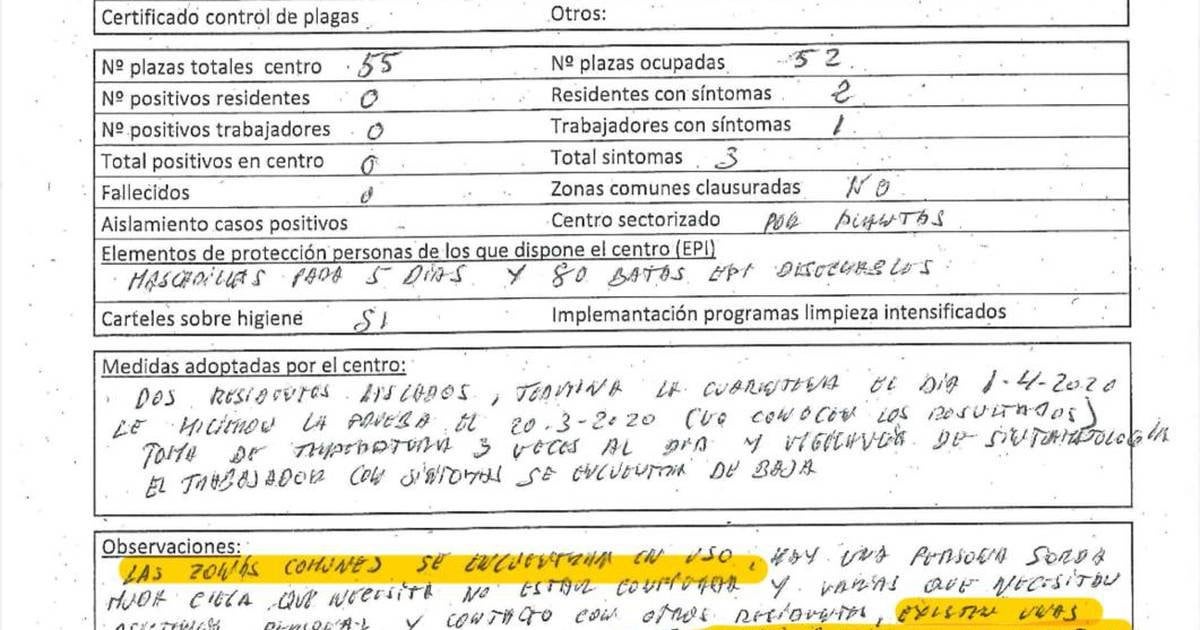 Certificado control de plagas Otros:
Nº plazas totales centro 55 Nº plazas ocupadas 52
Nº positivos residentes 0 Residentes con síntomas 2
Nº positivos trabajadores 0 Trabajadores con síntomas 1
Total positivos en centro 0 Total sintomas 3
Fallecidos 0 Zonas comunes clausuradas NO
Aislamiento casos positivos - Centro sectorizado POR PLANTAS
Elementos de protección personas de los que dispone el centro (EPI)
MASCARILLAS PARA 5 DIAS Y 80 BATAS EPI DESECHABLES
Carteles sobre higiene SI Implemantación programas limpieza intensificados
Medidas adoptadas por el centro:
DOS RESIDENTES AISLADOS, TERMINA LA CUARENTENA EL DIA 1-4-2020
LE HICIERON LA PRUEBA EL 20-3-2020 (NO CONOCEN LOS RESULTADOS)
TOMA DE TEMPERATURA 3 VECES AL DIA Y VIGILANCIA DE SINTOMATOLOGIA
EL TRABAJADOR CON SINTOMAS SE ENCUENTRA DE BAJA
Observaciones:
LAS ZONAS COMUNES SE ENCUENTRAN EN USO, HAY UNA PERSONA SORDA
MUDA CIEGA QUE NECESITA NO ESTAR CONFINADA Y VARIAS QUE NECESITAN
PERSONAL Y CONTACTO CON OTROS RESIDENTES, EXISTEN UNAS